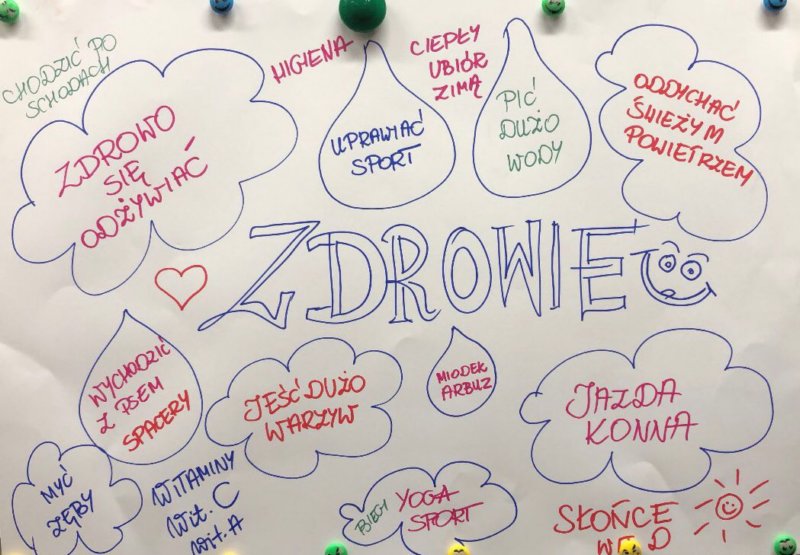 CHODZIĆ PO
SCHODACH
ZDROWO
SIĘ
ODŻYWIAĆ
HIGIENA
UPRAWIAĆ
SPORT
CIEPŁY
UBIÓR
ZIMĄ
PIĆ
DUŻO
WODY
ODDYCHAĆ
ŚWIEŻYM
POWIETRZEM
ZDROWIE
WYCHODZIĆ
Z PSEM
SPACERY
JEŚĆ DUŻO
WARZYW
MIODEK
ARBUZ
JAZDA
KONNA
MYĆ
ZĘBY
WITAMINY
Wit. C
Wit. A
BIEGI
YOGA
SPORT
SŁOŃCE